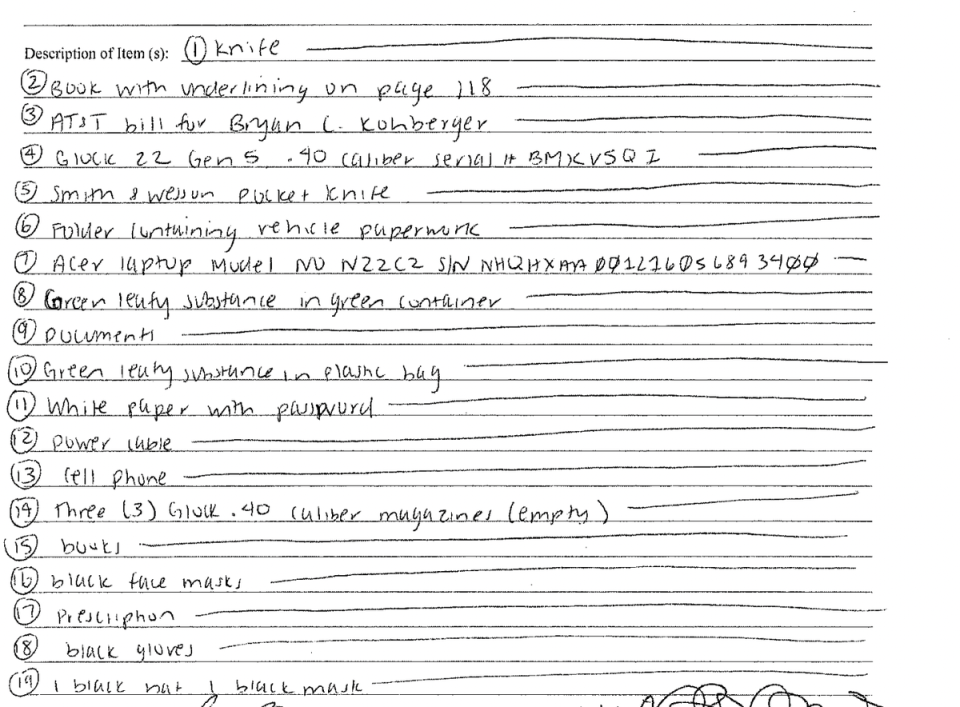 Description of Item (s): ① Knife
② Book with underlining on page 118
③ AT&T bill for Bryan C. Kohberger
④ Glock 22 Gen 5 .40 caliber serial # BMKV5QI
⑤ Smith & Wesson pocket knife
⑥ Folder containing vehicle paperwork
⑦ Acer laptop Model NO N22C2 S/N NHQHXAA001216056893400
⑧ Green leafy substance in green container
⑨ Documents
⑩ Green leafy substance in plastic bag
⑪ White paper with password
⑫ Power cable
⑬ Cell phone
⑭ Three (3) Glock .40 caliber magazines (empty)
⑮ books
⑯ black face masks
⑰ Prescription
⑱ black gloves
⑲ 1 black hat 1 black mask